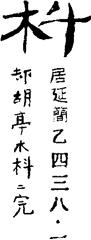 枓
居延簡乙四三八·一
却胡亭水枓二完